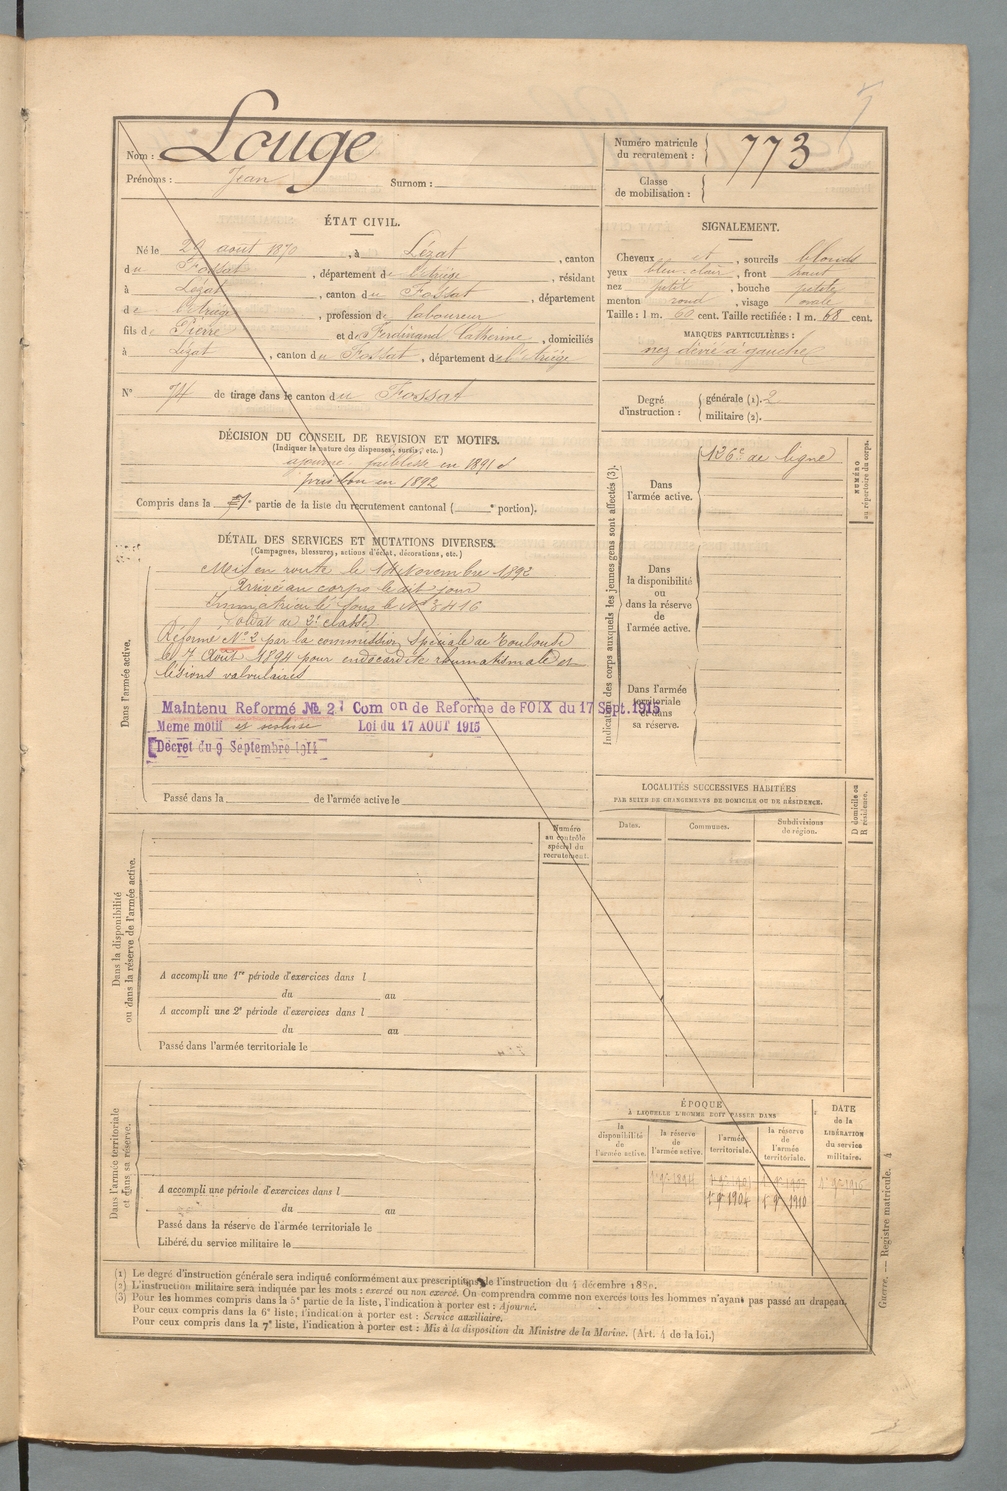 Nom : Louge
Prénoms : Jean Surnom :
Numéro matricule du recrutement : 773
Classe de mobilisation :
ÉTAT CIVIL.
Né le 29 août 1870, à Lézat, canton
du Fossat, département de l'Ariège, résidant
à Lézat, canton du Fossat, département
de l'Ariège, profession de laboureur
fils de Pierre et de Ferdinand Catherine, domiciliés
à Lézat, canton du Fossat, département de l'Ariège
N° 74 de tirage dans le canton du Fossat
SIGNALEMENT.
Cheveux et, sourcils blonds
yeux bleu-clair, front haut
nez petit, bouche petite
menton rond, visage ovale
Taille : 1 m. 60 cent. Taille rectifiée : 1 m. 68 cent.
MARQUES PARTICULIÈRES :
nez dévié à gauche
Degré d'instruction : générale (1). 2
militaire (2).
DÉCISION DU CONSEIL DE REVISION ET MOTIFS.
(Indiquer la nature des dispenses, sursis, etc.)
ajourné faiblesse en 1891
pris bon en 1892
Compris dans la partie de la liste du recrutement cantonal ( e portion).
DÉTAIL DES SERVICES ET MUTATIONS DIVERSES.
(Campagnes, blessures, actions d'éclat, décorations, etc.)
Dans l'armée active.
Mis en route le 14 Novembre 1892
Arrivé au corps le dit jour
Immatriculé sous le N° 3416
Soldat de 2e classe
Réformé N° 2 par la commission spéciale de Toulouse
le 7 Août 1894 pour endocardite rhumatismale et
lésions valvulaires
Maintenu Reformé № 2 Com on de Reforme de FOIX du 17 Sept. 1915
Meme motif et scoliose Loi du 17 AOUT 1915
Décret du 9 Septembre 1914
Passé dans la de l'armée active le
Indication des corps auxquels les jeunes gens sont affectés (3).
Dans l'armée active.
126e de ligne
NUMÉRO au répertoire du corps.
Dans la disponibilité ou dans la réserve de l'armée active.
Dans l'armée territoriale et dans sa réserve.
LOCALITÉS SUCCESSIVES HABITÉES
PAR SUITE DE CHANGEMENTS DE DOMICILE OU DE RÉSIDENCE.
Dates. Communes. Subdivisions de région.
D domicile ou R résidence.
Dans la disponibilité ou dans la réserve de l'armée active.
Numéro au contrôle spécial du recrutement.
A accompli une 1re période d'exercices dans l
du au
A accompli une 2e période d'exercices dans l
du au
Passé dans l'armée territoriale le
Dans l'armée territoriale et dans sa réserve.
A accompli une période d'exercices dans l
du au
Passé dans la réserve de l'armée territoriale le
Libéré du service militaire le
ÉPOQUE
À LAQUELLE L'HOMME DOIT PASSER DANS
la disponibilité de l'armée active.
la réserve de l'armée active.
l'armée territoriale.
la réserve de l'armée territoriale.
DATE de la LIBÉRATION du service militaire.
1er 9bre 1904 1er 9bre 1910
(1) Le degré d'instruction générale sera indiqué conformément aux prescriptions de l'instruction du 4 décembre 1889.
(2) L'instruction militaire sera indiquée par les mots : exercé ou non exercé. On comprendra comme non exercés tous les hommes n'ayant pas passé au drapeau.
(3) Pour les hommes compris dans la 5e partie de la liste, l'indication à porter est : Ajourné.
Pour ceux compris dans la 6e liste, l'indication à porter est : Service auxiliaire.
Pour ceux compris dans la 7e liste, l'indication à porter est : Mis à la disposition du Ministre de la Marine. (Art. 4 de la loi.)
Guerre. — Registre matricule. 4